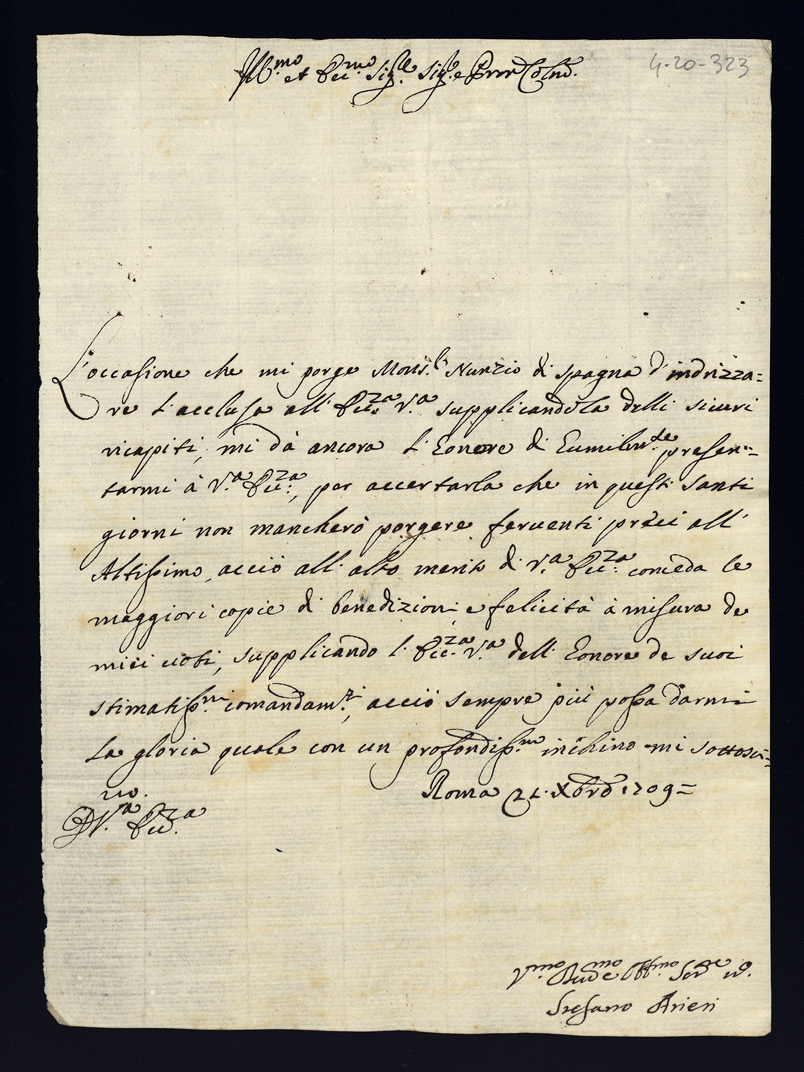 4-20-323
Ill.mo et Ecc.mo Sig.re Sig.re e Pron Col.mo
L'occasione che mi porge Mons.r Nunzio di Spagna d'indrizza=
re l'acclusa all'Ecc.za V.a supplicandola delli sicuri
ricapiti, mi dà ancora l'Eonore di Eumilm.te presen=
tarmi à V.a Ecc.za, per accertarla che in questi santi
giorni non mancherò porgere ferventi preci all'
Altissimo, acciò all'alto merito di V.a Ecc.za conceda le
maggiori copie di benedizioni e felicità à misura de
miei voti, supplicando l'Ecc.za V.a dell'Eonore de suoi
stimatiss.mi comandam.ti, acciò sempre più possa darmi
la gloria quale con un profondiss.mo inchino mi sottoscri=
vo.
Roma 21 Xbre 1709=
D V.a Ecc.za
V.mo Dev.mo Obb.mo Ser.re
Stefano